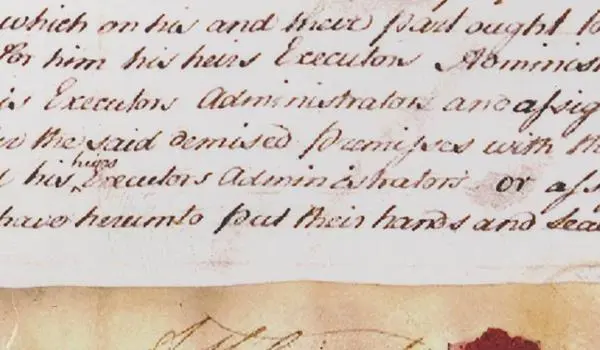 which on his and their part ought to
for him his heirs Executors Adminis
is Executors Administrators and assig
the said demised Premisses with th
heirs
his Executors Administrators or ass
have hereunto put their hands and Sea